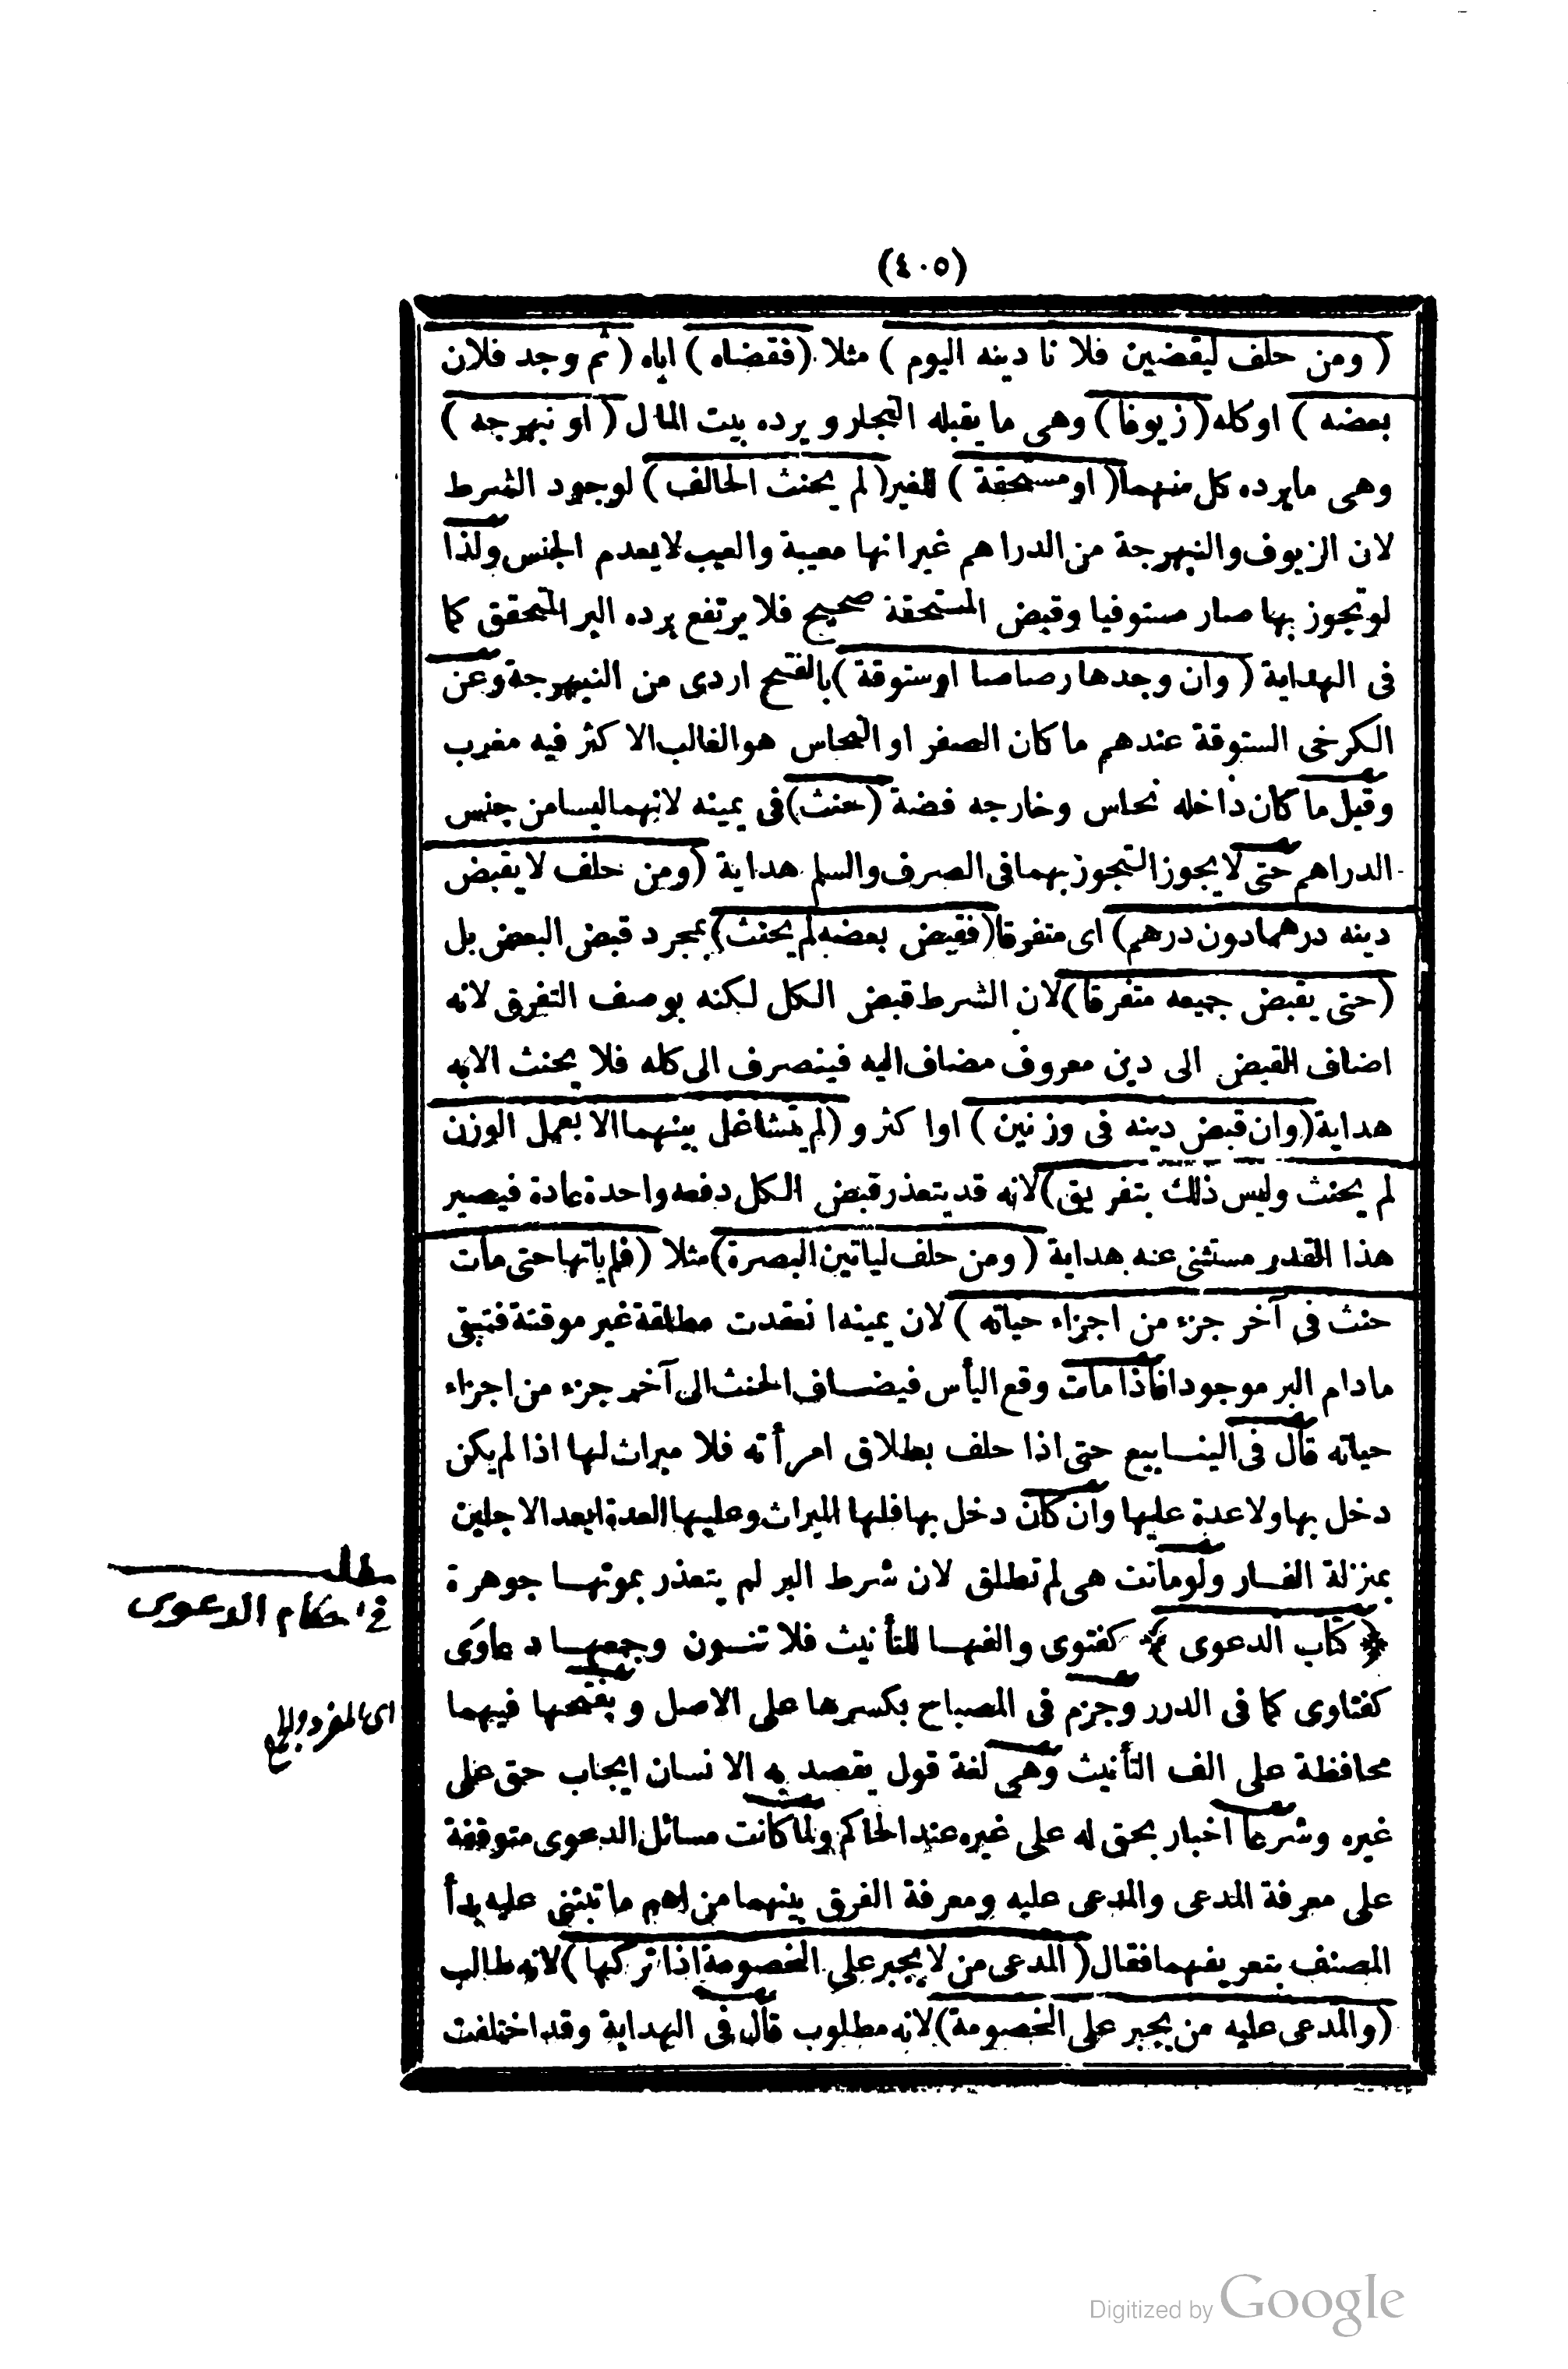 (٤٠٥)
( ومن حلف ليقضين فلا نا دينه اليوم ) مثلا (فقضاه) اياه (ثم وجد فلان
بعضه ) او كله (زيوفا) وهى ما يقبله التجار و يرده بيت المال (او نبهرجه)
وهى مايرده كل منهما (او مستحقة ) للغير (لم يحنث الحالف) لوجود الشرط
لان الزيوف والنبهرجة من الدراهم غير انها معيبة والعيب لايعدم الجنس ولذا
لو تجوز بها صار مستوفيا وقبض المستحقة صحيح فلا يرتفع برده البر المتحقق كما
فى الهداية (وان وجدها رصاصا اوستوقة) بالفتح اردى من النبهرجة وعن
الكرخى الستوقة عندهم ما كان الصفر او النحاس هو الغالب الا كثر فيه مغرب
وقيل ما كان داخله نحاس وخارجه فضة (حنث) فى يمينه لانهما ليسا من جنس
الدراهم حتى لايجوز التجوز بهما فى الصرف والسلم هداية (ومن حلف لايقبض
دينه درهما دون درهم) اى متفرقا (فقبض بعضه لم يحنث) بمجرد قبض البعض بل
(حتى يقبض جميعه متفرقا) لان الشرط قبض الكل لكنه بوصف التفرق لانه
اضاف القبض الى دين معروف مضاف اليه فينصرف الى كله فلا يحنث الابه
هداية (وان قبض دينه فى وزنين ) اوا كثر و (لم يتشاغل بينهما الا بعمل الوزن
لم يحنث وليس ذلك بتفريق) لانه قد يتعذر قبض الكل دفعه واحدة عادة فيصير
هذا القدر مستثنى عنه هداية (ومن حلف لياتين البصرة) مثلا (فلم ياتها حتى مات
حنث فى آخر جزء من اجزاء حياته ) لان يمينه ا نعقدت مطلقة غير موقتة فتبقى
مادام البر موجودا فاذا مات وقع اليأس فيضاف الحنث الى آخر جزء من اجزاء
حياته قال فى الينابيع حتى اذا حلف بطلاق امرأته فلا ميراث لها اذا لم يكن
دخل بها ولا عدة عليها وان كان دخل بها فلها الميراث وعليها العدة ابعد الاجلين
بمنزلة الفار ولوماتت هى لم تطلق لان شرط البر لم يتعذر بموتها جوهرة
﴿ كتاب الدعوى ﴾ كفتوى والفها للتأنيث فلا تنون وجمعها دعاوَى
كفتاوى كما فى الدرر وجزم فى المصباح بكسرها على الاصل و بفتحها فيهما
محافظة على الف التأنيث وهى لغة قول يقصد به الا نسان ايجاب حق على
غيره وشرعا اخبار بحق له على غيره عند الحاكم ولما كانت مسائل الدعوى متوقفة
على معرفة المدعى والمدعى عليه ومعرفة الفرق بينهما من اهم ما تبتنى عليه بدأ
المصنف بتعريفهما فقال (المدعى من لا يجبر على الخصومة اذا تركها) لانه طالب
(والمدعى عليه من يجبر على الخصومة) لانه مطلوب قال فى الهداية وقد اختلفت
مطلب
فى احكام الدعوى
اى المفرد والجمع
Digitized by Google